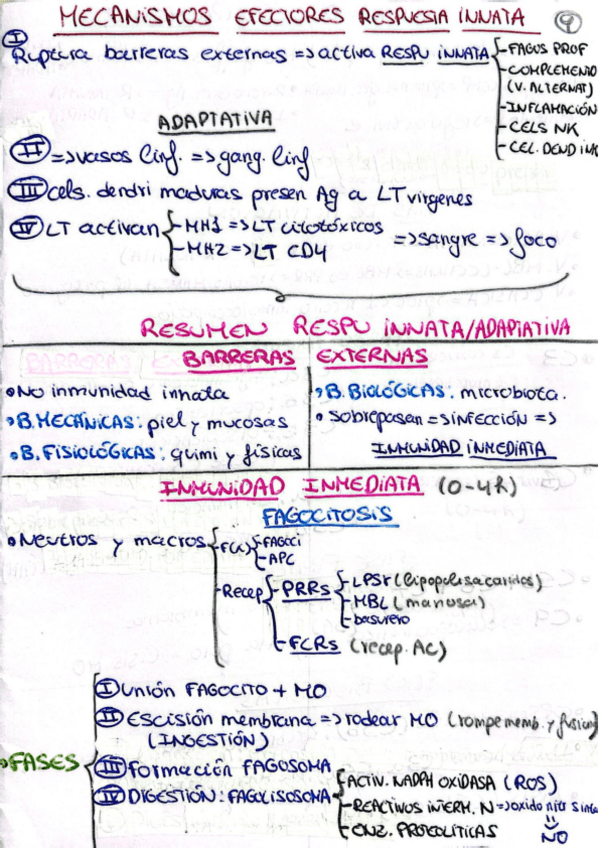 MECANISMOS EFECTORES RESPUESTA INNATA
I Ruptura barreras externas => activa RESPU INNATA
- FAGOS PROF
- COMPLEMENTO
(V. ALTERNAT)
- INFLAMACIÓN
- CELS NK
- CEL. DEND INK
ADAPTATIVA
II => vasos linf. => gang. linf
III cels. dendri maduras presen Ag a LT vírgenes
IV LT activan
- MH1 => LT citotóxicos
- MH2 => LT CD4
=> sangre => foco
RESUMEN RESPU INNATA/ADAPTATIVA
BARRERAS EXTERNAS
• No inmunidad innata
• B. MECÁNICAS: piel y mucosas
• B. FISIOLÓGICAS: quimi y físicas
• B. BIOLÓGICAS: microbiota.
• Sobrepasan => INFECCIÓN =>
INMUNIDAD INMEDIATA
INMUNIDAD INMEDIATA (0-4h)
FAGOCITOSIS
• Neutros y macros
F(x)
- FAGOCI
- APC
- Recep
- PRRs
- LPSr (lipopolisacaridos)
- MBL (manosa)
- basurero
- FCRs (recep. Ac)
• FASES
I UNIÓN FAGOCITO + MO
II Escisión membrana => rodear MO (rompe memb. y fusion)
(INGESTIÓN)
III Formación FAGOSOMA
IV DIGESTIÓN: FAGOLISOSOMA
- ACTIV. NADPH OXIDASA (ROS)
- REACTIVOS INTERM. N => oxido nitr sinta
= NO
- ENZ. PROTEOLITICAS